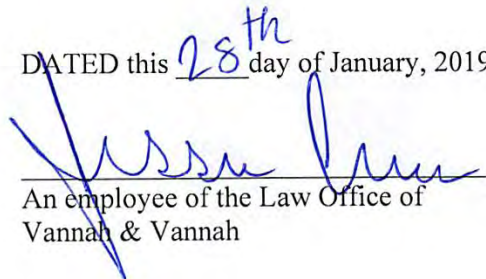 DATED this 28th day of January, 2019
An employee of the Law Office of
Vannah & Vannah